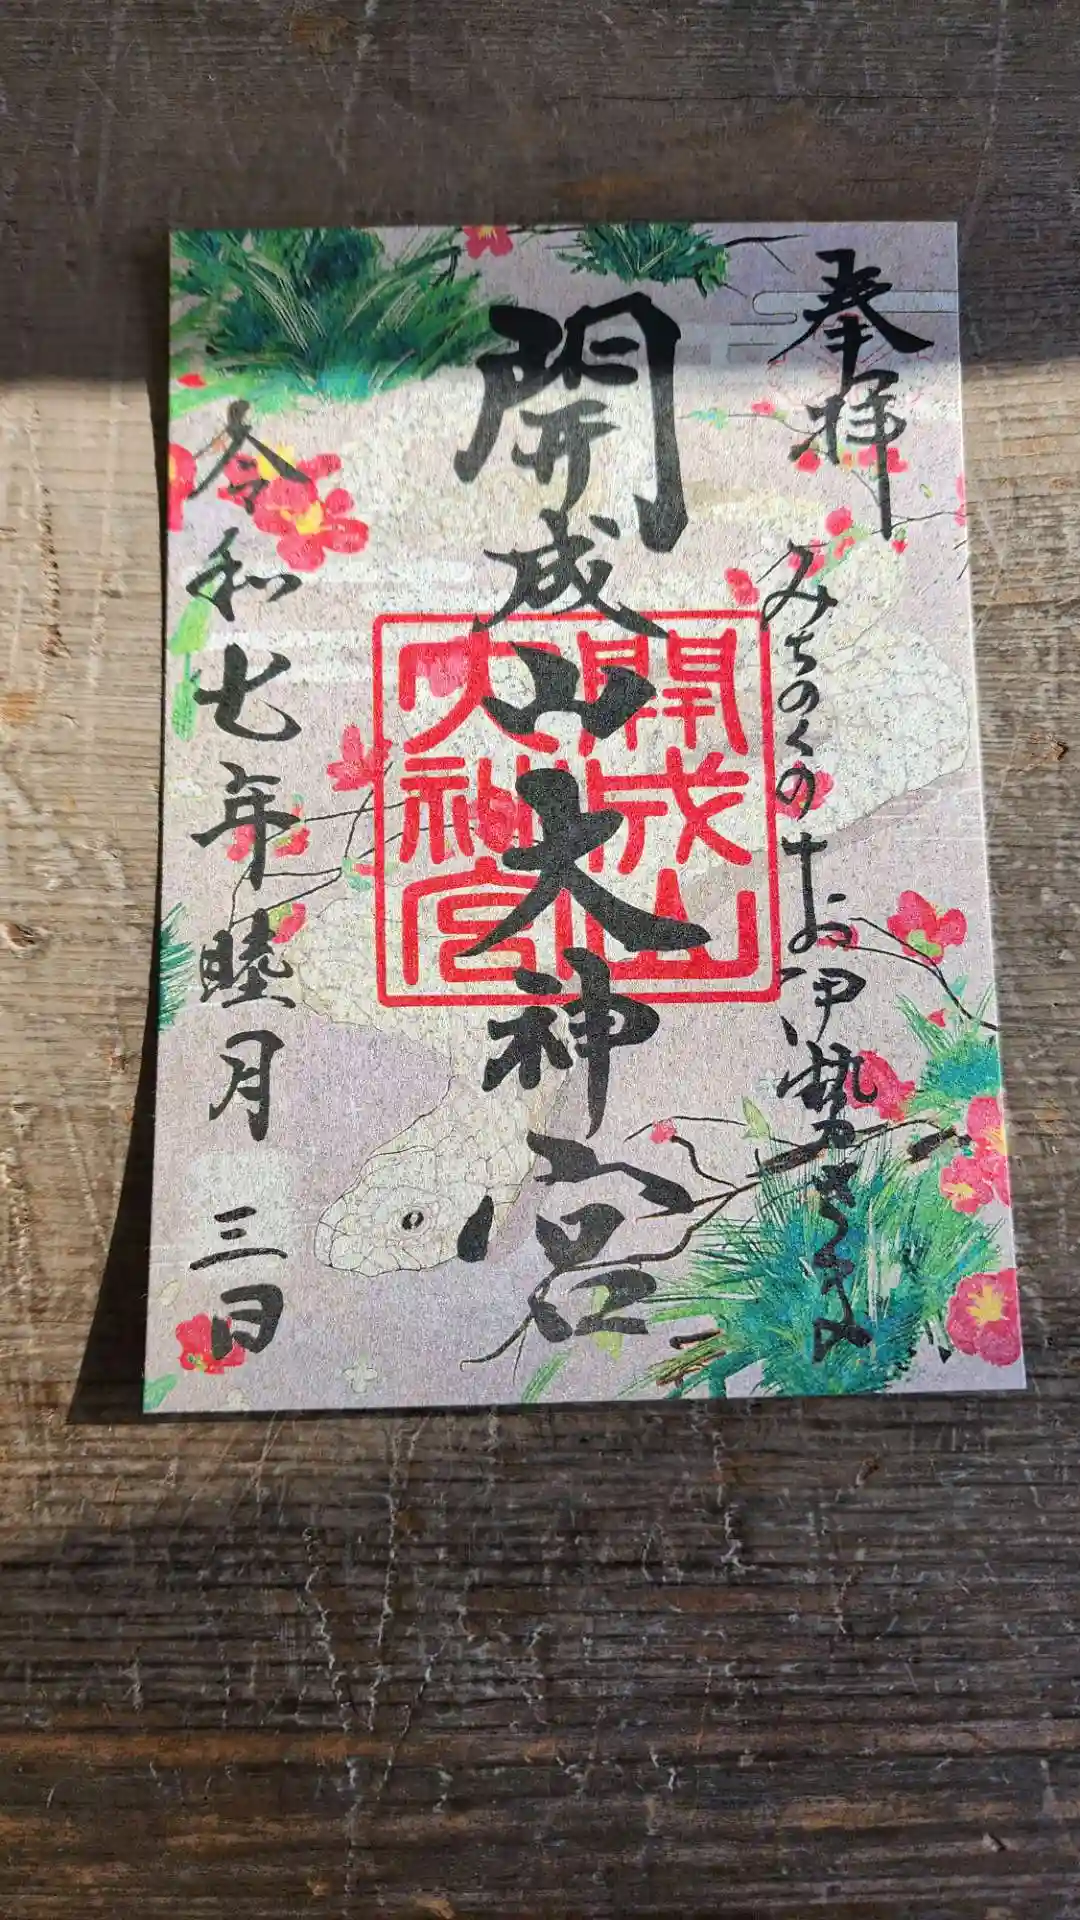 奉拝
みちのくのおお伊勢さま
開成山大神宮
開成山大神宮
令和七年睦月三日